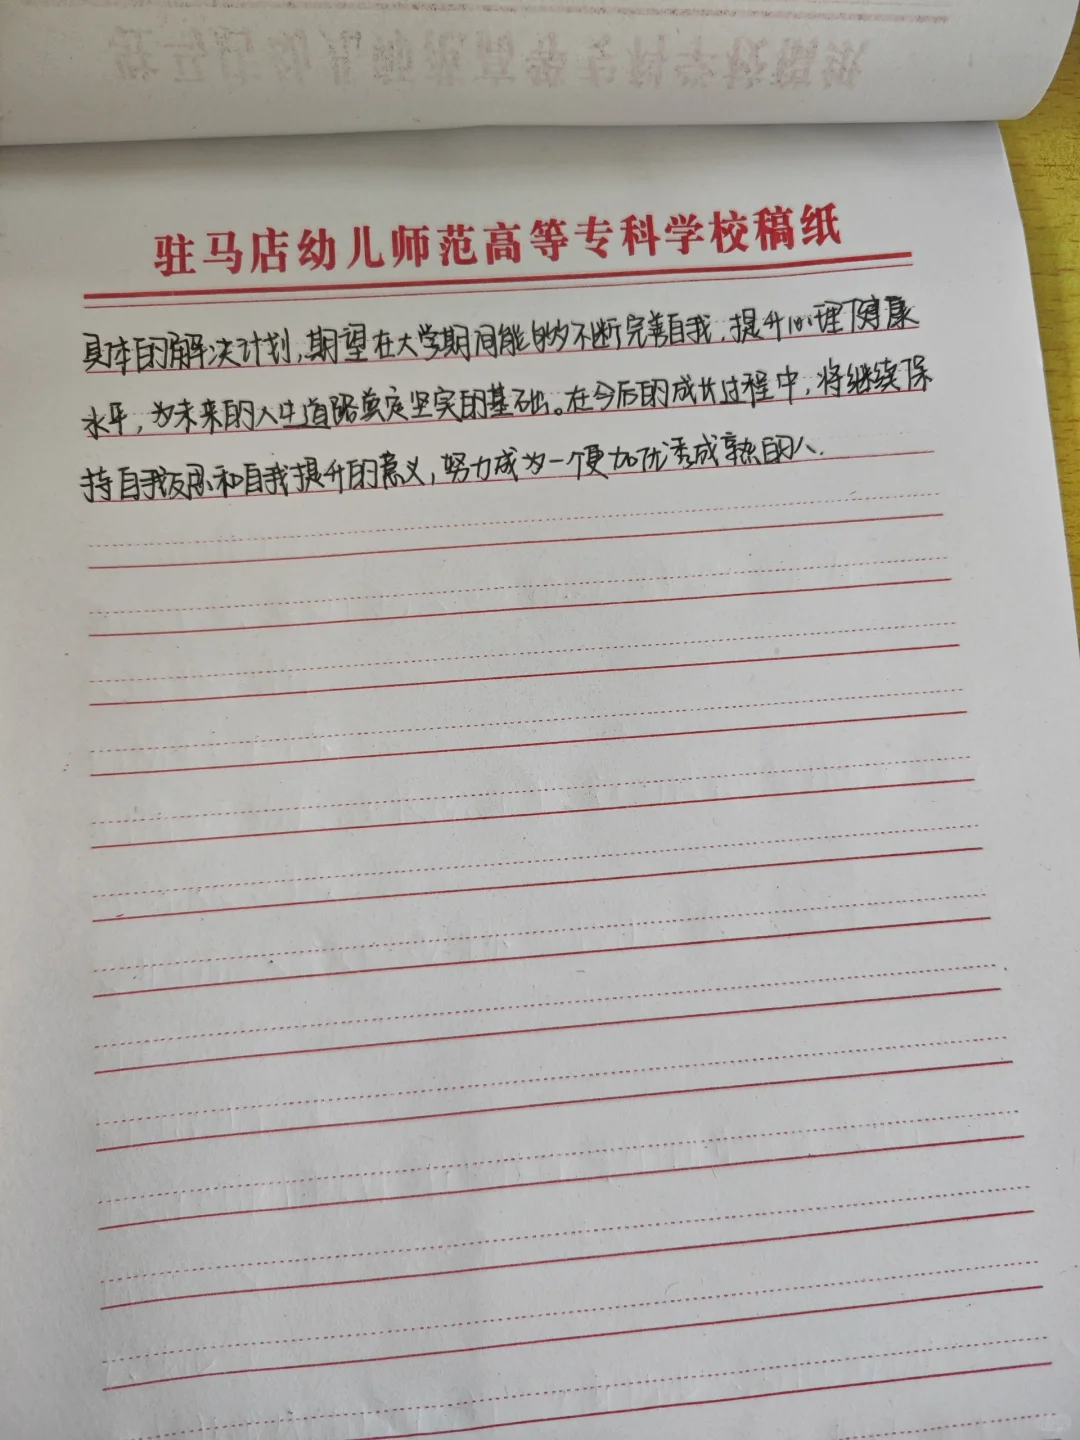 驻马店幼儿师范高等专科学校稿纸
具体的解决计划,期望在大学期间能够不断完善自我,提升心理健康
水平,为未来的人生道路奠定坚实的基础。在今后的成长过程中,将继续保
持自我反思和自我提升的意义,努力成为一个更加优秀成熟的人.